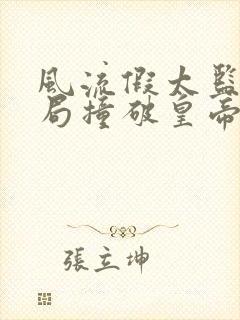 風流假太監
局撞破皇帝
張立坤